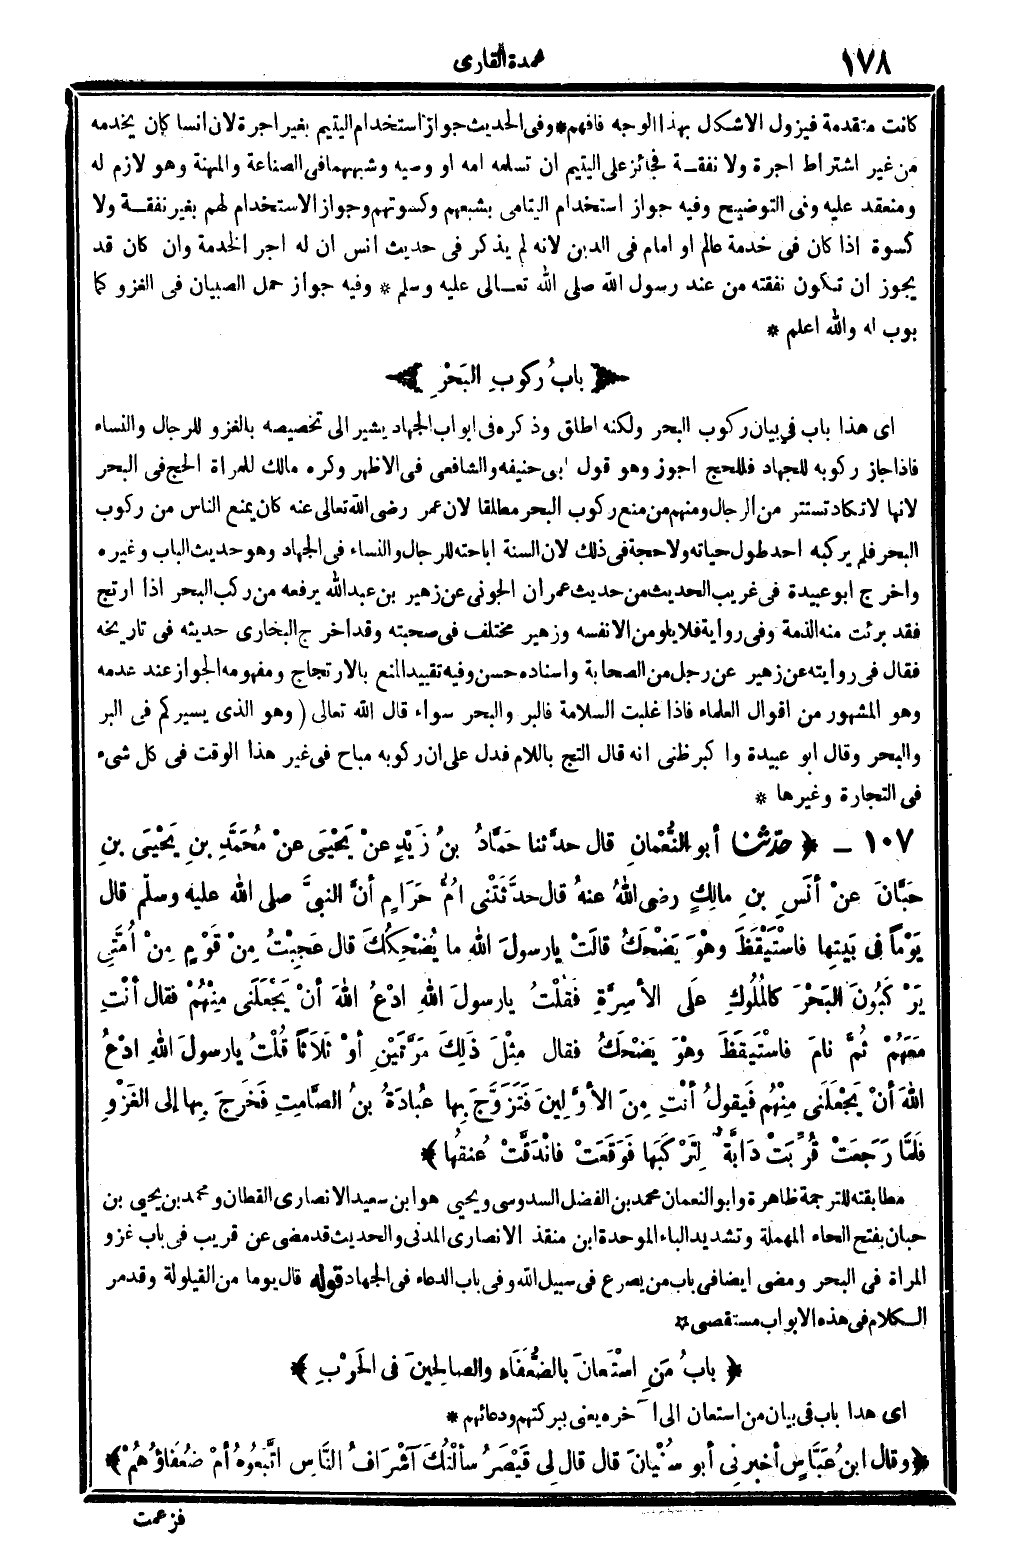 ١٧٨
عمدة القارى
كانت متقدمة فيزول الاشكال بهذا الوجه فافهم * وفى الحديث جواز استخدام اليتيم بغير اجرة لان انسا كان يخدمه
من غير اشتراط اجرة ولا نفقة فجائز على اليتيم ان تسلمه امه او وصيه وشبههما فى الصناعة والمهنة وهو لازم له
ومنعقد عليه وفى التوضيح وفيه جواز استخدام اليتامى بشبعهم وكسوتهم وجواز الاستخدام لهم بغير نفقة ولا
كسوة اذا كان فى خدمة عالم او امام فى الدين لانه لم يذكر فى حديث انس ان له اجر الخدمة وان كان قد
يجوز ان تكون نفقته من عند رسول الله صلى الله تعالى عليه وسلم * وفيه جواز حمل الصبيان فى الغزو كما
بوب له والله اعلم *
﴿ بابُ ركوبِ البَحْرِ ﴾
اى هذا باب في بيان ركوب البحر ولكنه اطلق وذكره فى ابواب الجهاد يشير الى تخصيصه بالغزو للرجال والنساء
فاذا جاز ركوبه للجهاد فللحج اجوز وهو قول ابى حنيفه والشافعى فى الاظهر وكره مالك للمراة الحج فى البحر
لانها لا تكاد تستتر من الرجال ومنهم من منع ركوب البحر مطلقا لان عمر رضى الله تعالى عنه كان يمنع الناس من ركوب
البحر فلم يركبه احد طول حياته ولا حجة فى ذلك لان السنة اباحته للرجال والنساء فى الجهاد وهو حديث الباب وغيره
واخرج ابو عبيدة فى غريب الحديث من حديث عمران الجونى عن زهير بن عبدالله يرفعه من ركب البحر اذا ارتج
فقد برئت منه الذمة وفى رواية فلا يلومن الا نفسه وزهير مختلف فى صحبته وقد اخرج البخارى حديثه فى تاريخه
فقال فى روايته عن زهير عن رجل من الصحابة واسناده حسن وفيه تقييد المنع بالارتجاج ومفهومه الجواز عند عدمه
وهو المشهور من اقوال العلماء فاذا غلبت السلامة فالبر والبحر سواء قال الله تعالى ( وهو الذى يسيركم فى البر
والبحر وقال ابو عبيدة واكبر ظنى انه قال التج باللام فدل على ان ركوبه مباح فى غير هذا الوقت فى كل شىء
فى التجارة وغيرها *
١٠٧ ـ ﴿ حدّثنا أبو النُّعْمانِ قال حدثنا حَمَّادُ بنُ زَيْدٍ عنْ يَحْيَى عنْ مُحَمَّدِ بنِ يَحْيَى بنِ
حَبَّانَ عنْ أنَسِ بنِ مالِكٍ رضى اللهُ عنهُ قال حدَّثَتْنى امُّ حَرَامٍ أنَّ النبيَّ صلى الله عليه وسلّم قال
يَوْماً فى بَيتِها فاسْتَيْقَظَ وهْوَ يَضْحَكُ قالَتْ يارسولَ اللهِ ما يُضْحِكُكَ قال عَجِبْتُ مِنْ قَوْمٍ مِنْ أُمَّتِى
يَرْكَبُونَ البَحْرَ كالمُلُوكِ علَى الأسِرَّةِ فَقُلْتُ يارسولَ اللهِ ادْعُ اللهَ أنْ يَجْعَلَنى مِنْهُمْ فقال أنْتِ
مَعَهُمْ ثُمَّ نامَ فاسْتَيقَظَ وهْوَ يَضْحَكُ فقال مِثْلَ ذَلِكَ مَرَّتَيْنِ أوْ ثَلَاثاً قُلْتُ يارسولَ اللهِ ادْعُ
اللهَ أنْ يَجْعَلَنى مِنْهُم فَيقولُ أنْتِ مِنَ الأوَّلِينَ فَتَزَوَّجَ بِها عُبادَةُ بنُ الصَّامِتِ فَخَرَجَ بِها إلى الغَزْوِ
فَلَمَّا رَجَعَتْ قُرِّبَتْ دَابَّةٌ لِتَرْكَبَها فَوَقَعَتْ فانْدَقَّتْ عُنقُها ﴾
مطابقته للترجمة ظاهرة وابو النعمان محمد بن الفضل السدوسى ويحيى هو ابن سعيد الانصارى القطان ومحمد بن يحيى بن
حبان بفتح الحاء المهملة وتشديد الباء الموحدة ابن منقذ الانصارى المدنى والحديث قد مضى عن قريب فى باب غزو
المراة فى البحر ومضى ايضا فى باب من يصرع فى سبيل الله وفى باب الدعاء فى الجهاد قوله قال يوما من القيلولة وقد مر
الكلام فى هذه الابواب مستقصى *
﴿ بابُ مَنِ اسْتَعانَ بالضُّعَفَاءِ والصالِحِينَ فى الحَرْبِ ﴾
اى هدا باب فى بيان من استعان الى آخره يعنى ببركتهم ودعائهم *
﴿ وقال ابنُ عَبَّاسٍ أخبرنى أبو سُفْيانَ قال قال لِى قَيْصَرُ سألْتُكَ آشْرَافُ النَّاسِ اتَّبَعُوهُ أمْ ضُعَفاؤُهُمْ ﴾
فزعمت